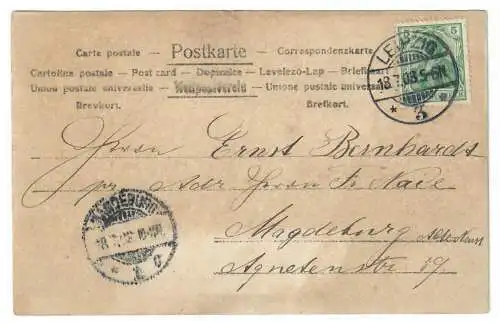 Carte postale — Postkarte — Correspondenzkarte
Cartolina postale — Post card — Dopisnice — Levelező-Lap — Briefkaart
Union postale universelle — Weltpostverein — Unione postale universale
Brevkort. Brefkort.
5
LEIPZIG
18.7.03.5-6N.
* 3
Herrn Ernst Bernhardt
pr. Adr. Herrn Fr.
Magdeburg
Agnetenstr. 19.
MAGDEBURG
18.7.